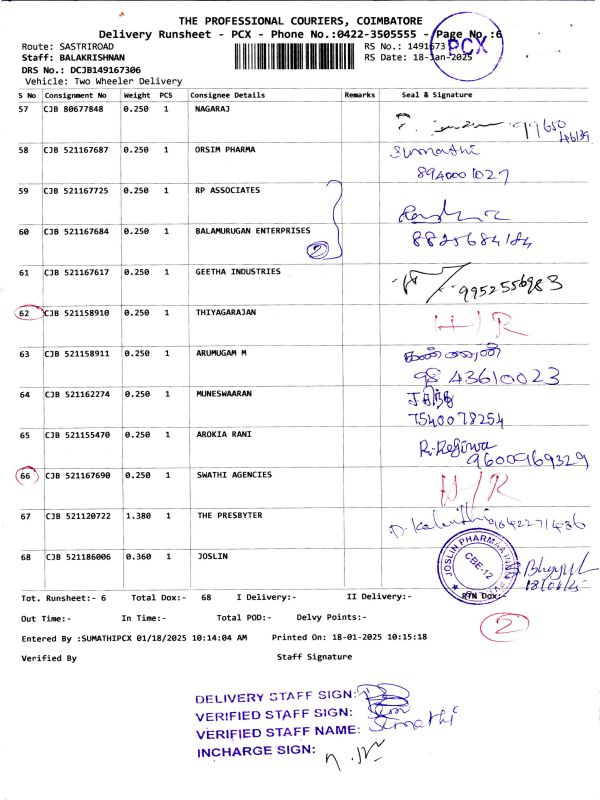 THE PROFESSIONAL COURIERS, COIMBATORE
Delivery Runsheet - PCX - Phone No.:0422-3505555 - Page No.:6
Route: SASTRIROAD RS No.: 1491673
PCX
Staff: BALAKRISHNAN RS Date: 18-Jan-2025
DRS No.: DCJB149167306
Vehicle: Two Wheeler Delivery
S No Consignment No Weight PCS Consignee Details Remarks Seal & Signature
57 CJB 80677848 0.250 1 NAGARAJ
58 CJB 521167687 0.250 1 ORSIM PHARMA Sumathi
8940001027
59 CJB 521167725 0.250 1 RP ASSOCIATES
60 CJB 521167684 0.250 1 BALAMURUGAN ENTERPRISES 8825684184
2
61 CJB 521167617 0.250 1 GEETHA INDUSTRIES 9952556983
62 CJB 521158910 0.250 1 THIYAGARAJAN H/R
63 CJB 521158911 0.250 1 ARUMUGAM M
9843610023
64 CJB 521162274 0.250 1 MUNESWAARAN
7540078254
65 CJB 521155470 0.250 1 AROKIA RANI
9600969329
66 CJB 521167690 0.250 1 SWATHI AGENCIES H/R
67 CJB 521120722 1.380 1 THE PRESBYTER
68 CJB 521186006 0.360 1 JOSLIN
JOSLIN PHARMA
CBE-12
Tot. Runsheet:- 6 Total Dox:- 68 I Delivery:- II Delivery:- RTN Dox:-
2
Out Time:- In Time:- Total POD:- Delvy Points:-
Entered By :SUMATHIPCX 01/18/2025 10:14:04 AM Printed On: 18-01-2025 10:15:18
Verified By Staff Signature
DELIVERY STAFF SIGN:
VERIFIED STAFF SIGN:
VERIFIED STAFF NAME: Sumathi
INCHARGE SIGN: